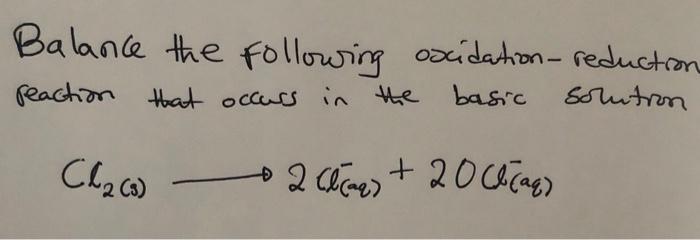 Balance the following oxidation-reduction
reaction that occurs in the basic solution
Cl₂(g) → 2Cl⁻(aq) + 2OCl⁻(aq)